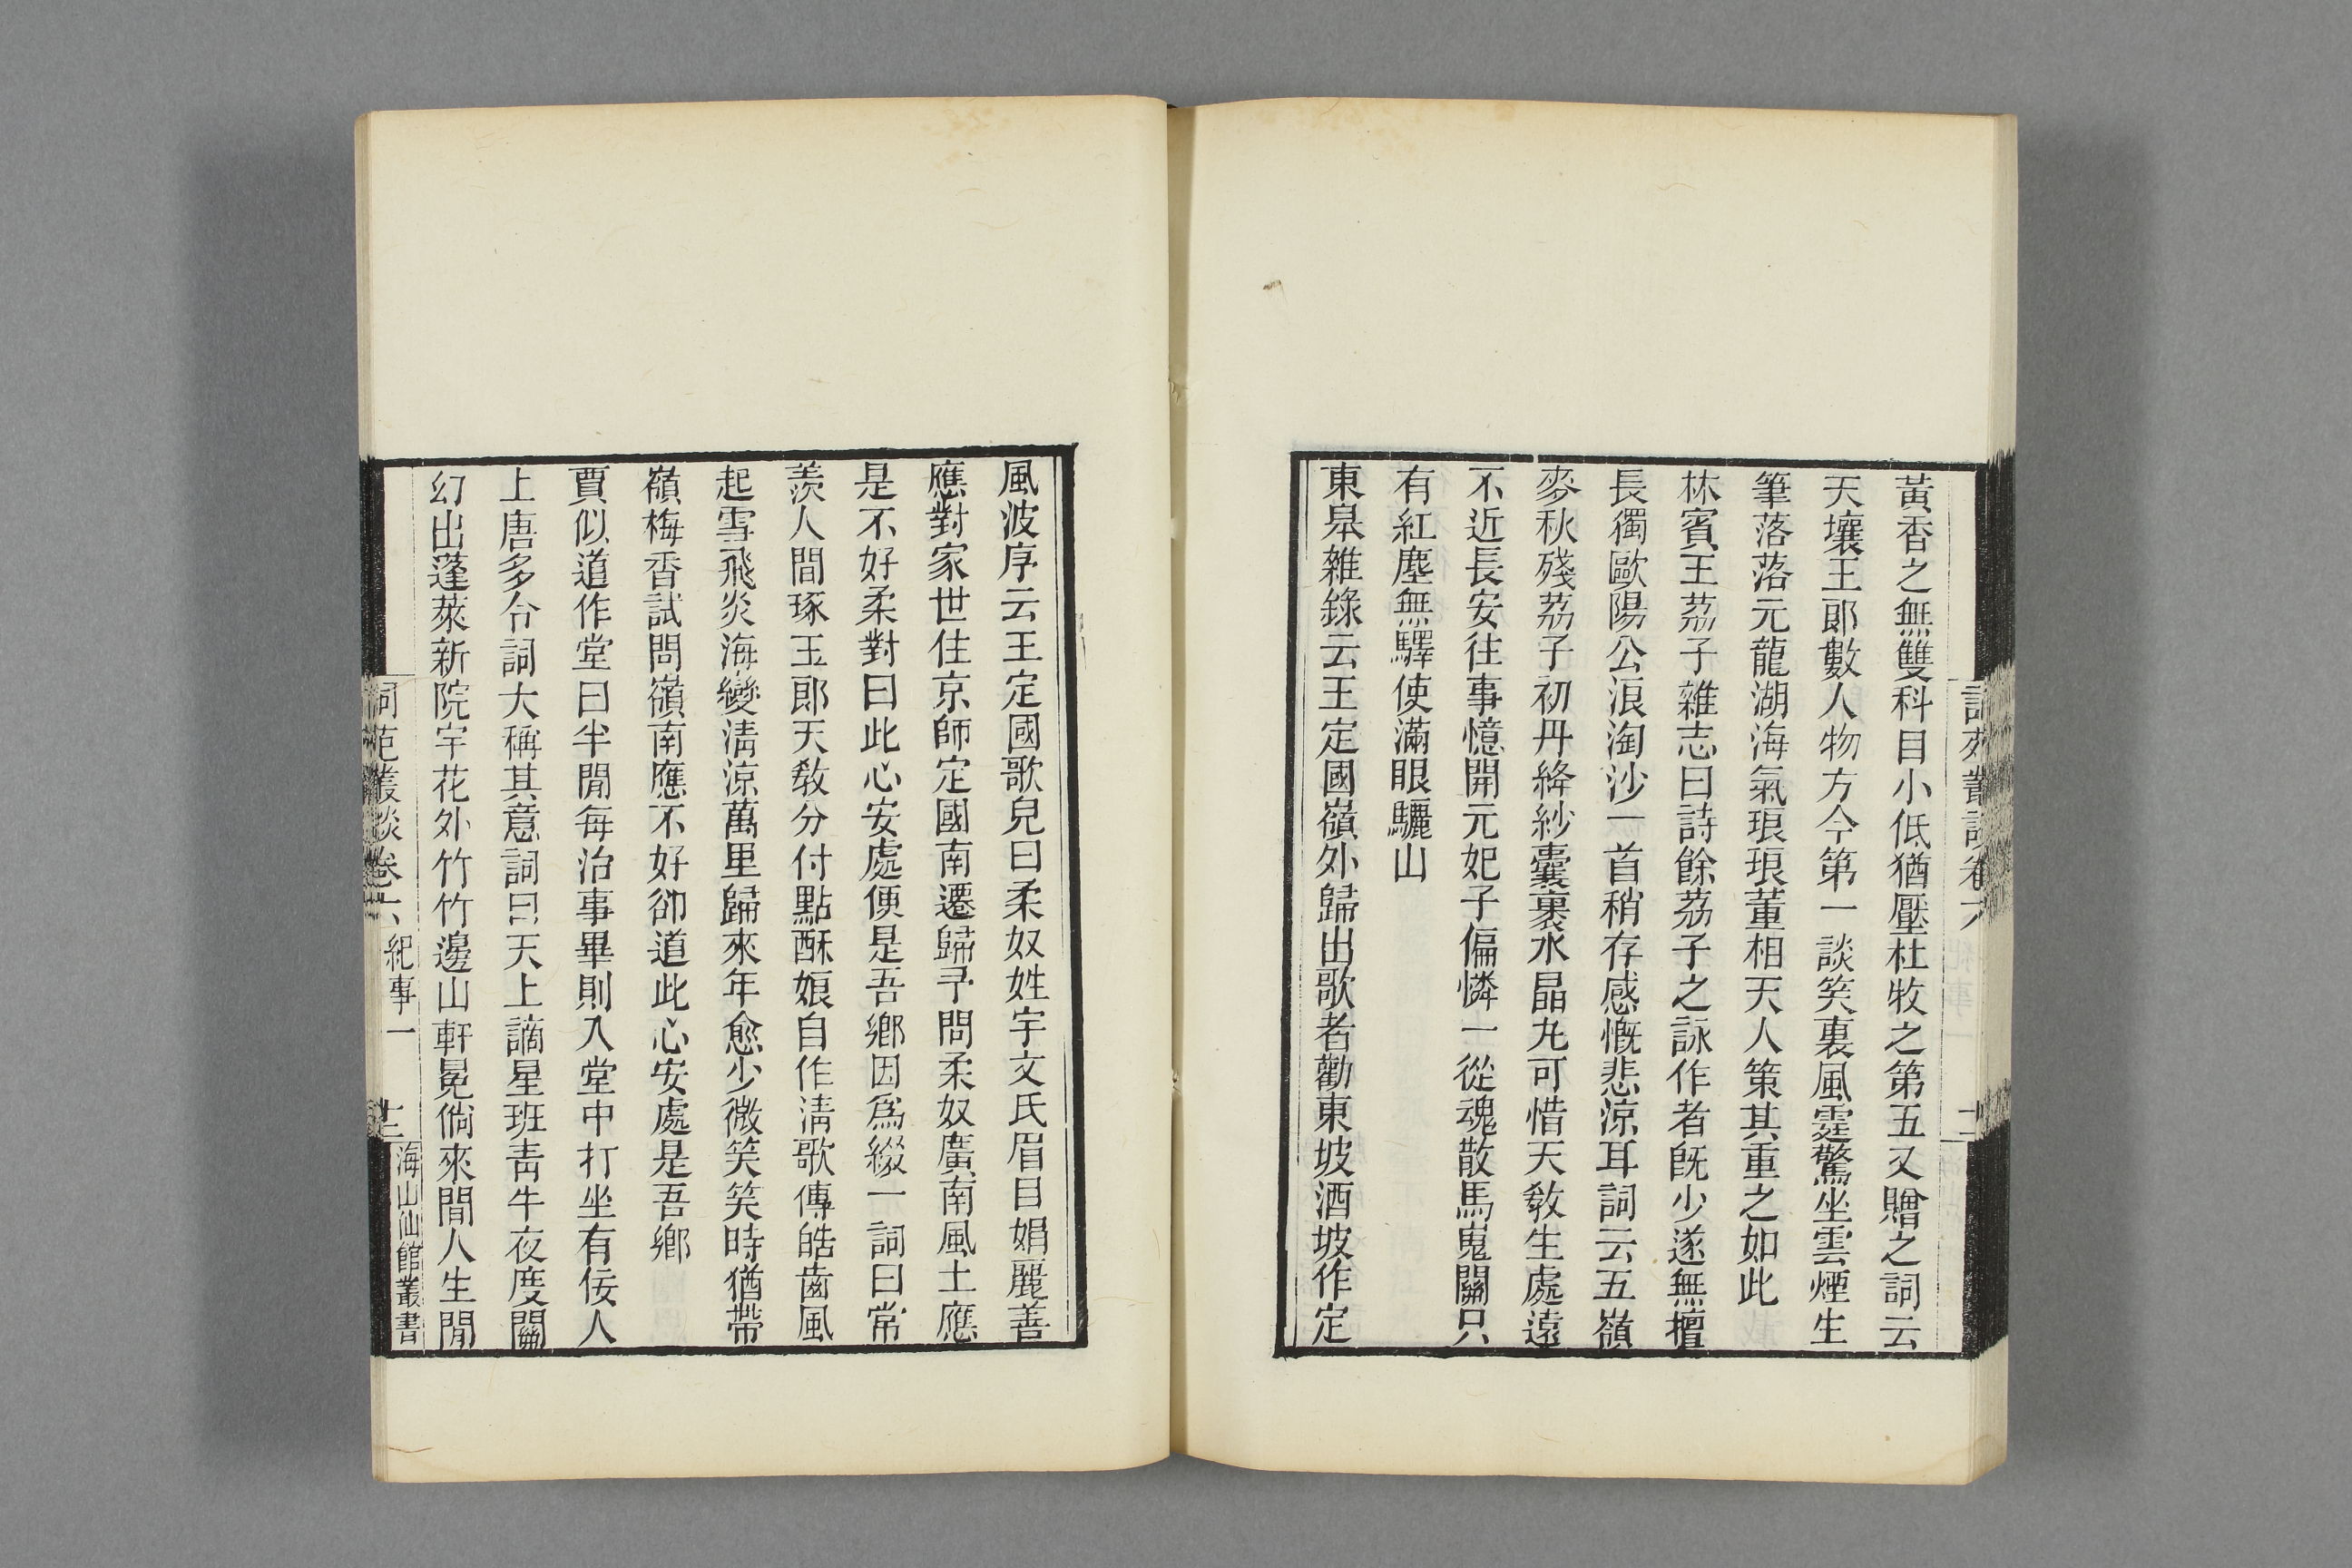 黃香之無雙科目小低猶壓杜牧之第五又贈之詞云
天壤王郎數人物方今第一談笑裏風霆驚坐雲煙生
筆落落元龍湖海氣琅琅董相天人策其重之如此
林賓王荔子雜志曰詩餘荔子之詠作者旣少遂無擅
長獨歐陽公浪淘沙一首稍存感慨悲涼耳詞云五嶺
麥秋殘荔子初丹絳紗囊裏水晶丸可惜天敎生處遠
不近長安往事憶開元妃子偏憐一從魂散馬嵬關只
有紅塵無驛使滿眼驪山
東臯雜錄云王定國嶺外歸出歌者勸東坡酒坡作定
風波序云王定國歌兒曰柔奴姓宇文氏眉目娟麗善
應對家世住京師定國南遷歸予問柔奴廣南風土應
是不好柔對曰此心安處便是吾鄉因爲綴一詞曰常
羨人間琢玉郎天敎分付點酥娘自作淸歌傳皓齒風
起雪飛炎海變淸涼萬里歸來年愈少微笑笑時猶帶
嶺梅香試問嶺南應不好卻道此心安處是吾鄉
賈似道作堂曰半閒每治事畢則入堂中打坐有佞人
上唐多令詞大稱其意詞曰天上謫星班靑牛夜度關
幻出蓬萊新院宇花外竹竹邊山軒冕倘來間人生閒
詞苑叢談卷六 紀事一 十二 海山仙館叢書